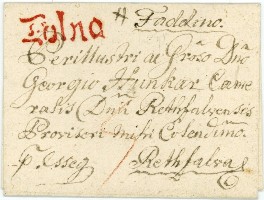 Tolna
# Faddino.
Perillustri ac Grõso Dnõ
Georgio Hunkar Came
ralis Dnii Rethfalvensis
Provisori mihi Colendmo.
p. Esseg
Rethfalva